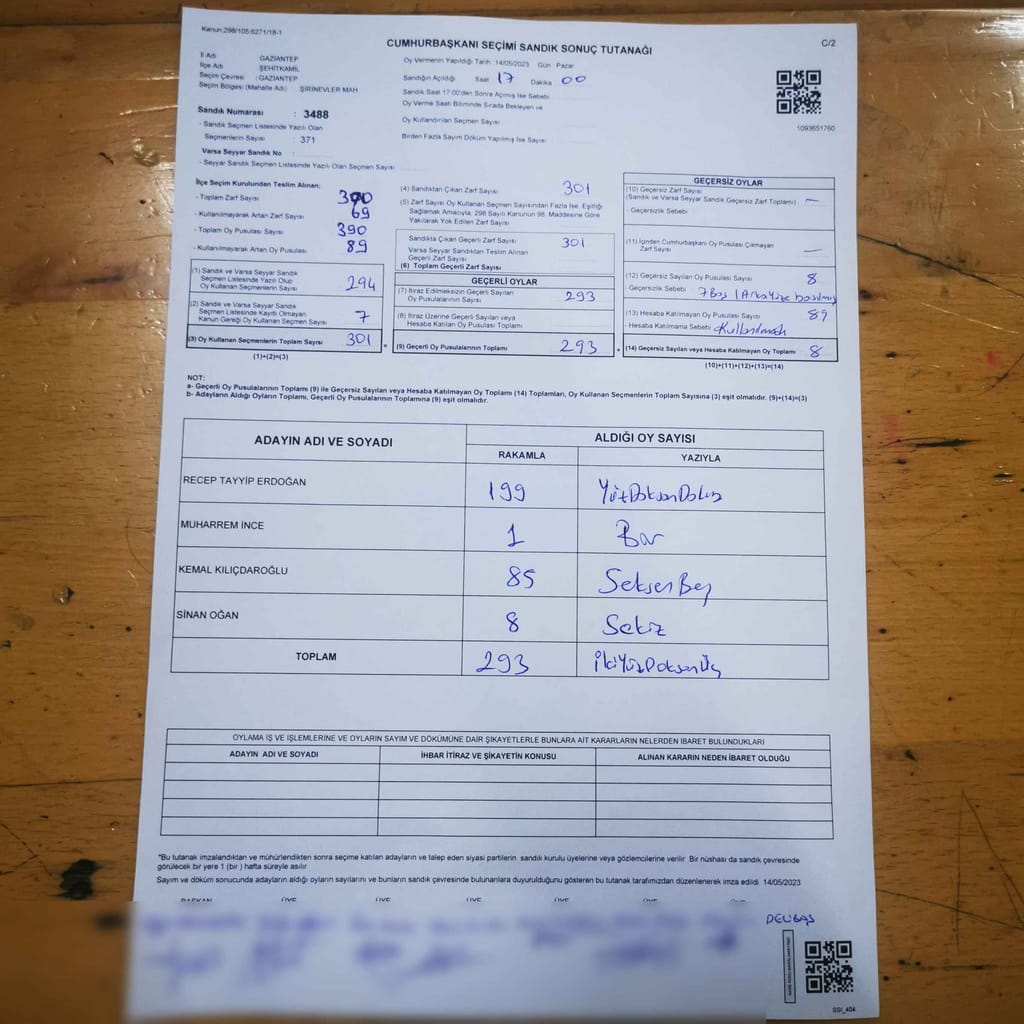 Kanun:298/105:6271/18-1
C/2
CUMHURBAŞKANI SEÇİMİ SANDIK SONUÇ TUTANAĞI
İl Adı : GAZİANTEP
İlçe Adı : ŞEHİTKAMİL
Seçim Çevresi : GAZİANTEP
Seçim Bölgesi (Mahalle Adı) ŞİRİNEVLER MAH
Sandık Numarası : 3488
- Sandık Seçmen Listesinde Yazılı Olan
Seçmenlerin Sayısı : 371
Varsa Seyyar Sandık No :
- Seyyar Sandık Seçmen Listesinde Yazılı Olan Seçmen Sayısı
Oy Vermenin Yapıldığı Tarih :14/05/2023 Gün Pazar
Sandığın Açıldığı Saat 17 Dakika 00
Sandık Saat 17:00'den Sonra Açılmış İse Sebebi
Oy Verme Saati Bitiminde Sırada Bekleyen ve
Oy Kullandırılan Seçmen Sayısı
Birden Fazla Sayım Döküm Yapılmış İse Sayısı
1093651760
İlçe Seçim Kurulundan Teslim Alınan;
- Toplam Zarf Sayısı 390
- Kullanılmayarak Artan Zarf Sayısı 69
- Toplam Oy Pusulası Sayısı 390
- Kullanılmayarak Artan Oy Pusulası 89
(1) Sandık ve Varsa Seyyar Sandık
Seçmen Listesinde Yazılı Olup
Oy Kullanan Seçmenlerin Sayısı 294
(2) Sandık ve Varsa Seyyar Sandık
Seçmen Listesinde Kayıtlı Olmayan
Kanun Gereği Oy Kullanan Seçmen Sayısı 7
(3) Oy Kullanan Seçmenlerin Toplam Sayısı 301
(1)+(2)=(3)
(4) Sandıktan Çıkan Zarf Sayısı 301
(5) Zarf Sayısı Oy Kullanan Seçmen Sayısından Fazla İse, Eşitliği
Sağlamak Amacıyla, 298 Sayılı Kanunun 98. Maddesine Göre
Yakılarak Yok Edilen Zarf Sayısı
Sandıkta Çıkan Geçerli Zarf Sayısı 301
Varsa Seyyar Sandıktan Teslim Alınan
Geçerli Zarf Sayısı
(6) Toplam Geçerli Zarf Sayısı
GEÇERLİ OYLAR
(7) İtiraz Edilmeksizin Geçerli Sayılan
Oy Pusulalarının Sayısı 293
(8) İtiraz Üzerine Geçerli Sayılan veya
Hesaba Katılan Oy Pusulası Toplamı
(9) Geçerli Oy Pusulalarının Toplamı 293
GEÇERSİZ OYLAR
(10) Geçersiz Zarf Sayısı
(Sandık ve Varsa Seyyar Sandık Geçersiz Zarf Toplamı) —
- Geçersizlik Sebebi
(11) İçinden Cumhurbaşkanı Oy Pusulası Çıkmayan
Zarf Sayısı —
(12) Geçersiz Sayılan Oy Pusulası Sayısı 8
- Geçersizlik Sebebi 7 Boş 1 Arka Yüze basılmış
(13) Hesaba Katılmayan Oy Pusulası Sayısı 89
- Hesaba Katılmama Sebebi
(14) Geçersiz Sayılan veya Hesaba Katılmayan Oy Toplamı 8
(10)+(11)+(12)+(13)=(14)
NOT:
a- Geçerli Oy Pusulalarının Toplamı (9) ile Geçersiz Sayılan veya Hesaba Katılmayan Oy Toplamı (14) Toplamları, Oy Kullanan Seçmenlerin Toplam Sayısına (3) eşit olmalıdır. (9)+(14)=(3)
b- Adayların Aldığı Oyların Toplamı, Geçerli Oy Pusulalarının Toplamına (9) eşit olmalıdır.
ADAYIN ADI VE SOYADI
ALDIĞI OY SAYISI
RAKAMLA YAZIYLA
RECEP TAYYİP ERDOĞAN 199 YüzDoksanDokuz
MUHARREM İNCE 1 Bir
KEMAL KILIÇDAROĞLU 85 SeksenBeş
SİNAN OĞAN 8 Sekiz
TOPLAM 293 İkiYüzDoksanÜç
OYLAMA İŞ VE İŞLEMLERİNE VE OYLARIN SAYIM VE DÖKÜMÜNE DAİR ŞİKAYETLERLE BUNLARA AİT KARARLARIN NELERDEN İBARET BULUNDUKLARI
ADAYIN ADI VE SOYADI İHBAR İTİRAZ VE ŞİKAYETİN KONUSU ALINAN KARARIN NEDEN İBARET OLDUĞU
*Bu tutanak imzalandıktan ve mühürlendikten sonra seçime katılan adayların ve talep eden siyasi partilerin sandık kurulu üyelerine veya gözlemcilerine verilir. Bir nüshası da sandık çevresinde
görülecek bir yere 1 (bir ) hafta süreyle asılır.
Sayım ve döküm sonucunda adayların aldığı oyların sayılarını ve bunların sandık çevresinde bulunanlara duyurulduğunu gösteren bu tutanak tarafımızdan düzenlenerek imza edildi. 14/05/2023
BAŞKAN ÜYE ÜYE ÜYE ÜYE ÜYE ÜYE
DELİBAŞ
SSI_404